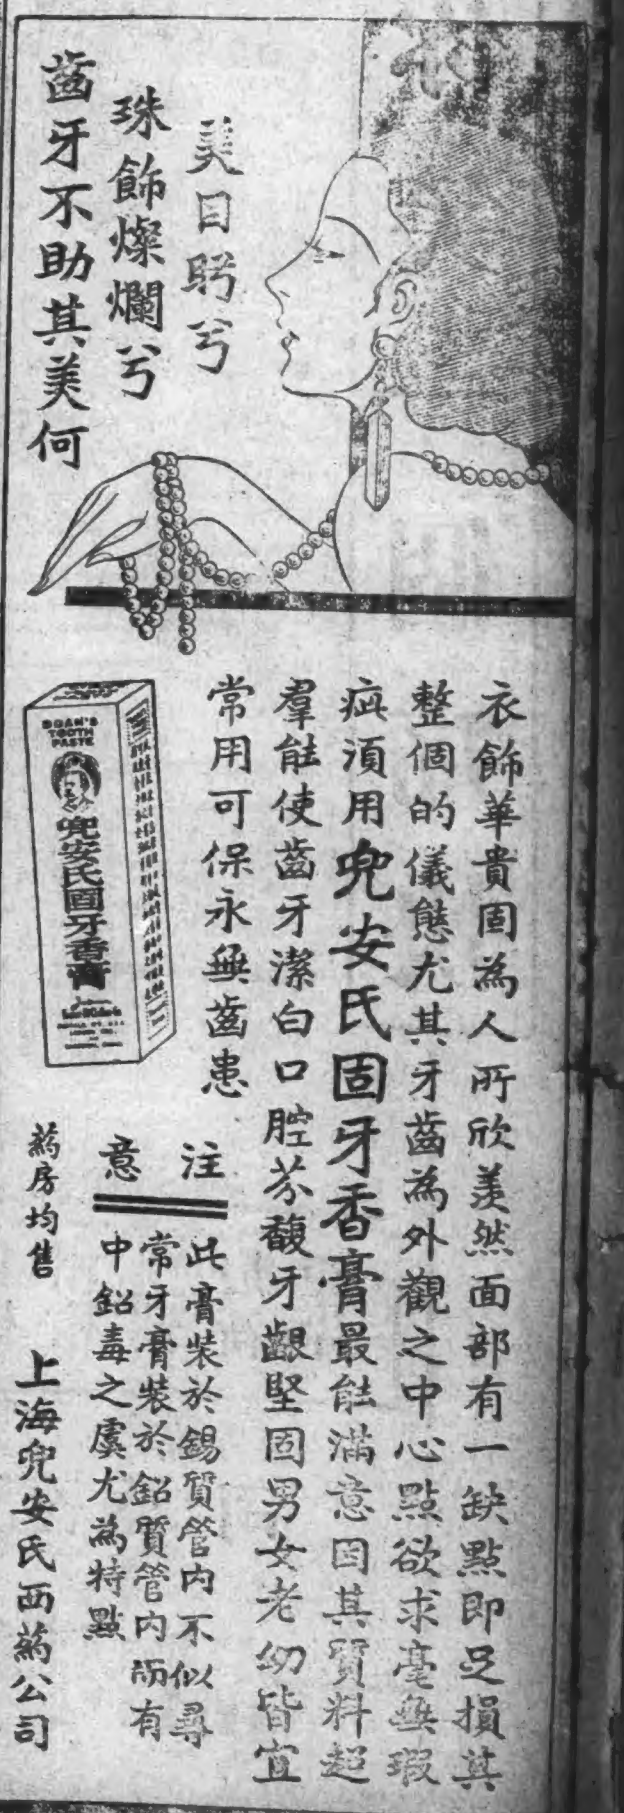 美目盼兮
珠飾燦爛兮
齒牙不助其美何
衣飾華貴固為人所欣羨然面部有一缺點即足損其
整個的儀態尤其牙齒為外觀之中心點欲求毫無瑕
疵須用兜安氏固牙香膏最能滿意因其質料超
羣能使齒牙潔白口腔芬馥牙齦堅固男女老幼皆宜
常用可保永無齒患
DOAN'S
TOOTH
PASTE
兜安氏固牙香膏
注意
此膏裝於錫質管內不似尋
常牙膏裝於鉛質管內而有
中鉛毒之虞尤為特點
藥房均售
上海兜安氏西藥公司